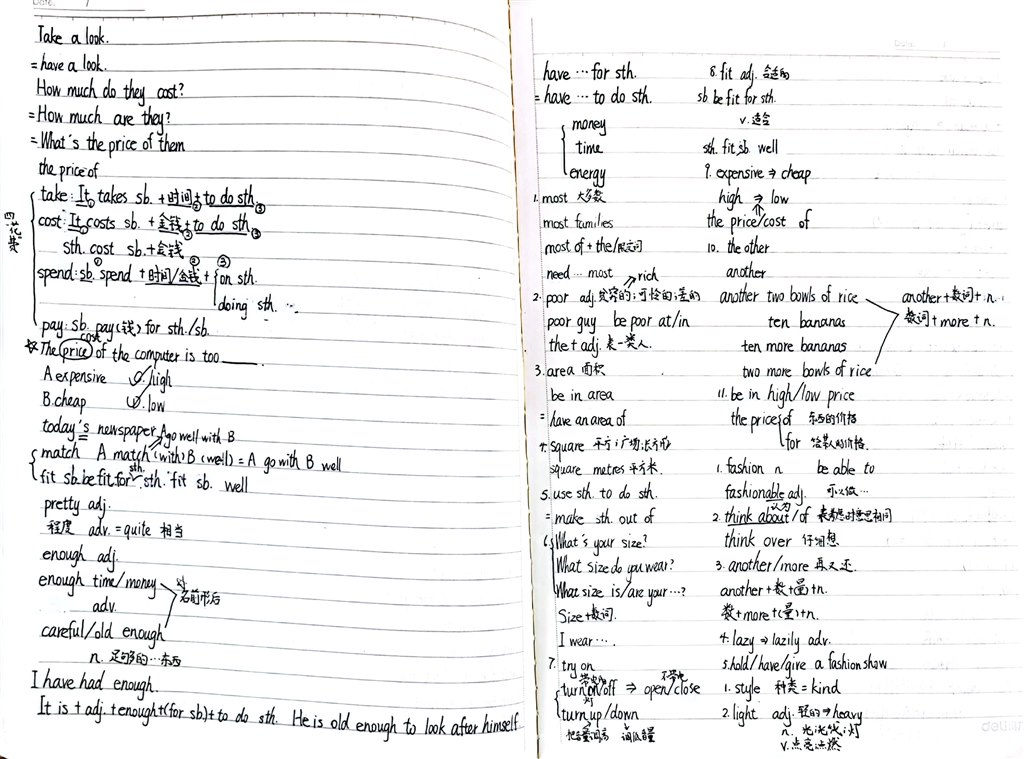 Date.
Take a look.
= have a look.
How much do they cost?
= How much are they?
= What's the price of them
the price of
四花费
take: It takes sb. + 时间 + to do sth.
① ② ③
cost: It costs sb. + 金钱 + to do sth.
① ② ③
sth. cost sb. + 金钱
spend: sb. spend + 时间/金钱 + on sth.
① ② ③
doing sth. …
pay: sb. pay (钱) for sth./sb.
cost
☆ The price of the computer is too
A expensive C. high
B. cheap D. low
today's newspaper A go well with B
match A match (with) B (well) = A go with B well
sth.
fit sb. be fit for sth. fit sb. well
pretty adj.
程度 adv. = quite 相当
enough adj.
enough time/money
名前形后
adv.
careful/old enough
n. 足够的…东西
I have had enough.
It is + adj. + enough + (for sb.) + to do sth. He is old enough to look after himself.
have … for sth.
= have … to do sth.
money
time
energy
1. most 大多数
most families
most of + the/限定词
need … most
rich
2. poor adj. 贫穷的;可怜的;差的
poor guy be poor at/in
the + adj. 表一类人.
3. area 面积
be in area
= have an area of
4. square 平方;广场;正方形
square metres 平方米.
5. use sth. to do sth.
= make sth. out of
6. What's your size?
What size do you wear?
What size is/are your …?
Size + 数词.
I wear ….
7. try on
turn on/off ⇒ open/close
灯
turn up/down
把音量调高 调低音量
Date
8. fit adj. 合适的
sb. be fit for sth.
v. 适合
sth. fit sb. well
9. expensive ⇒ cheap
high ⇒ low
the price/cost of
10. the other
another
another two bowls of rice
another + 数词 + n.
ten bananas
数词 + more + n.
ten more bananas
two more bowls of rice
11. be in high/low price
the price of 东西的价格
for
1. fashion n be able to
fashionable adj. 可以做…
认为
2. think about/of 表考虑时意思相同
think over 仔细想
3. another/more 再;又;还.
another + 数 + (量) + n.
数 + more + (量) + n.
4. lazy ⇒ lazily adv.
5. hold/have/give a fashion show
1. style 种类 = kind
2. light adj. 轻的 ⇒ heavy
n. 光;光线;灯
v. 点亮;点燃
deli